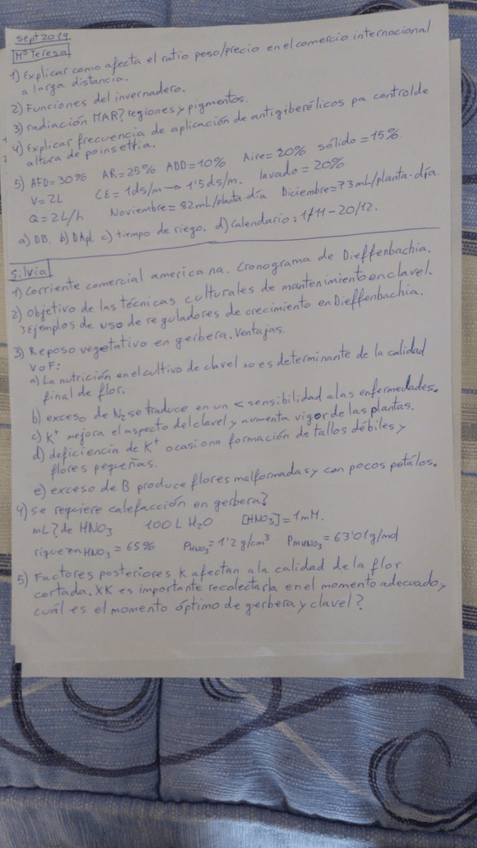 sept 2019
Mª Teresa
1) Explicar como afecta el ratio peso/precio en el comercio internacional
a larga distancia.
2) Funciones del invernadero.
3) radiación MAR? regiones y pigmentos.
4) Explicar frecuencia de aplicación de antigiberélicos pa control de
altura de poinsettia.
5) AFD = 30% AR = 25% ADD = 10% Aire = 20% sólido = 15%
V = 2L CE = 1ds/m → 1'5ds/m. lavado = 20%
Q = 2L/h Noviembre = 82mL/planta·día Diciembre = 73mL/planta·día.
a) DB. b) DApl. c) tiempo de riego. d) Calendario: 1/11 - 20/12.
Silvia
1) Corriente comercial americana. Cronograma de Dieffenbachia.
2) Objetivo de las técnicas culturales de mantenimiento en clavel.
3 Ejemplos de uso de reguladores de crecimiento en Dieffenbachia.
3) Reposo vegetativo en gerbera. Ventajas.
V o F:
a) La nutrición en el cultivo de clavel no es determinante de la calidad
final de flor.
b) exceso de N₂ se traduce en un < sensibilidad a las enfermedades.
c) K⁺ mejora el aspecto del clavel y aumenta vigor de las plantas.
d) deficiencia de K⁺ ocasiona formación de tallos débiles y
flores pequeñas.
e) exceso de B produce flores malformadas y con pocos petálos.
4) se requiere calefacción en gerbera?
mL? de HNO₃ 100 L H₂O [HNO₃] = 1mM.
riqueza HNO₃ = 65% ρHNO₃ = 1'2 g/cm³ PmHNO₃ = 63'01g/mol
5) Factores posteriores k afectan a la calidad de la flor
cortada. XK es importante recolectarla en el momento adecuado y
cuál es el momento óptimo de gerbera y clavel?